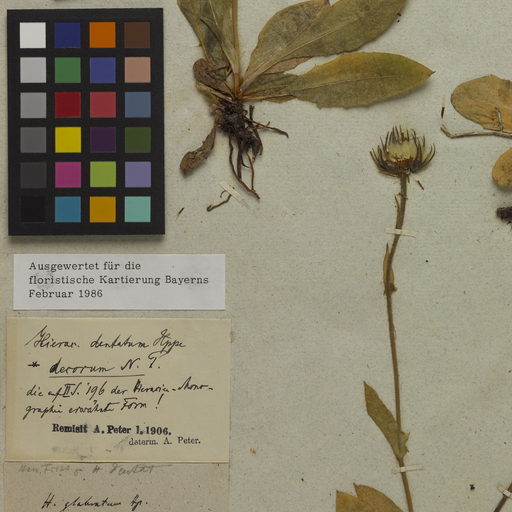 Ausgewertet für die
floristische Kartierung Bayerns
Februar 1986
Hierac. dentatum Hppe
* decorum N. P.
die auf II S. 196 der Hieracien-Mono-
graphie erwähnte Form!
Remisit A. Peter 1.1906.
determ. A. Peter.
H. glabratum